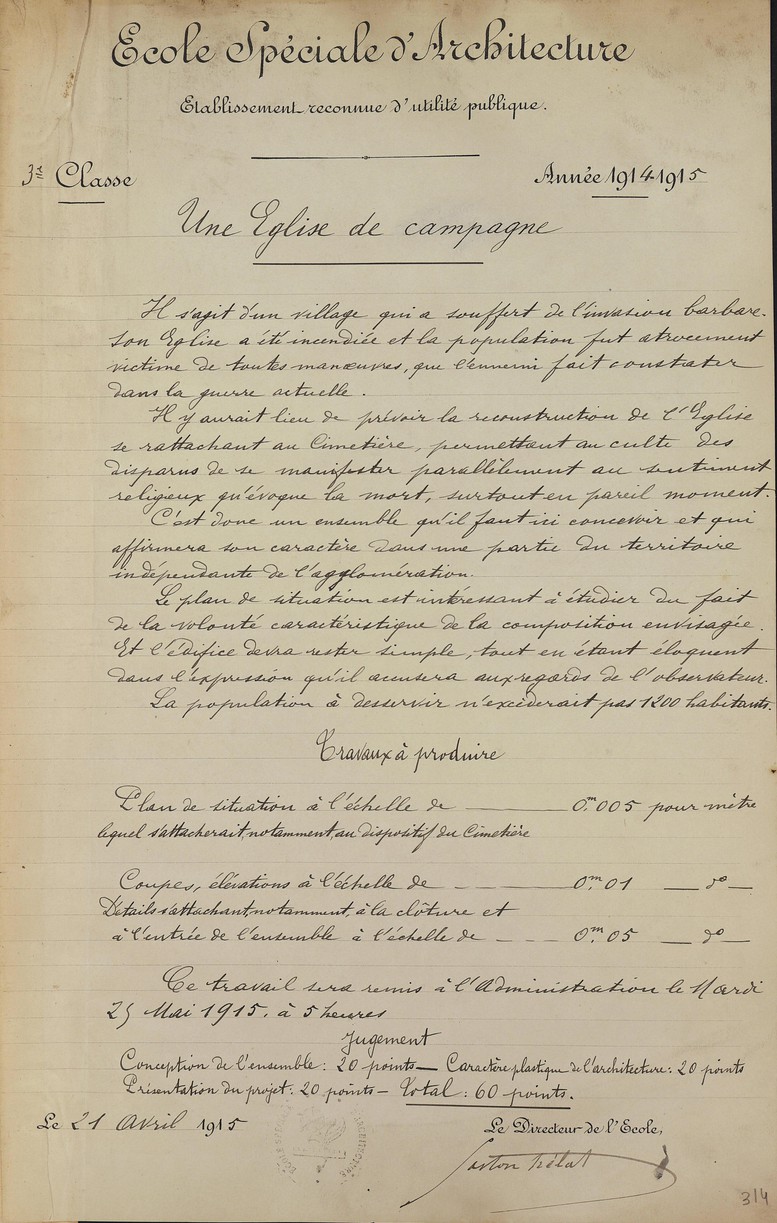 Ecole Spéciale d'Architecture
Etablissement reconnue d'utilité publique.
3e Classe
Année 1914-1915
Une Eglise de campagne
Il s'agit d'un village qui a souffert de l'invasion barbare.
Son Eglise a été incendiée et la population fut atrocement
victime de toutes manœuvres, que l'ennemi fait constater
dans la guerre actuelle.
Il y aurait lieu de prévoir la reconstruction de l'Eglise
se rattachant au Cimetière, permettant au culte des
disparus de se manifester parallèlement au sentiment
religieux qu'évoque la mort, surtout en pareil moment.
C'est donc un ensemble qu'il faut ici concevoir et qui
affirmera son caractère dans une partie du territoire
indépendante de l'agglomération.
Le plan de situation est intéressant à étudier du fait
de la volonté caractéristique de la composition envisagée.
Et l'édifice devra rester simple, tout en étant éloquent
dans l'expression qu'il accusera aux regards de l'observateur.
La population à desservir n'excéderait pas 1200 habitants.
Travaux à produire
Plan de situation à l'échelle de — 0m.005 pour mètre
lequel s'attacherait, notamment, au dispositif du Cimetière
Coupes, élévations à l'échelle de — 0m.01 — do —
Détails s'attachant, notamment, à la clôture et
à l'entrée de l'ensemble à l'échelle de — 0m.05 — do —
Ce travail sera remis à l'Administration le Mardi
25 Mai 1915. à 5 heures
Jugement
Conception de l'ensemble : 20 points — Caractère plastique de l'architecture : 20 points
Présentation du projet : 20 points — Total : 60 points.
Le 21 Avril 1915
Le Directeur de l'Ecole,
ECOLE SPÉCIALE D'ARCHITECTURE
Gaston Trélat
314